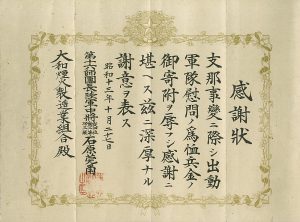 感謝狀
支那事變ニ際シ出動
軍隊慰問ノ爲恤兵金ノ
御寄附ヲ辱ウシ感謝ニ
堪ヘス茲ニ深厚ナル
謝意ヲ表ス
昭和十三年十月三十一日
第十六師團長陸軍中將
大和煙火製造業組合殿